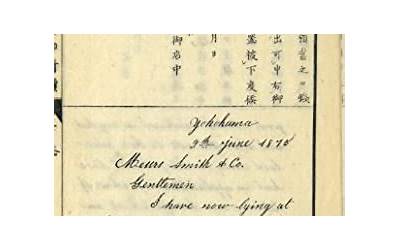 之口錢
出可申御
置被下度候
月日
御店中
Yokohama
9th June 1875
Messrs Smith & Co.
Gentlemen
I have now lying at